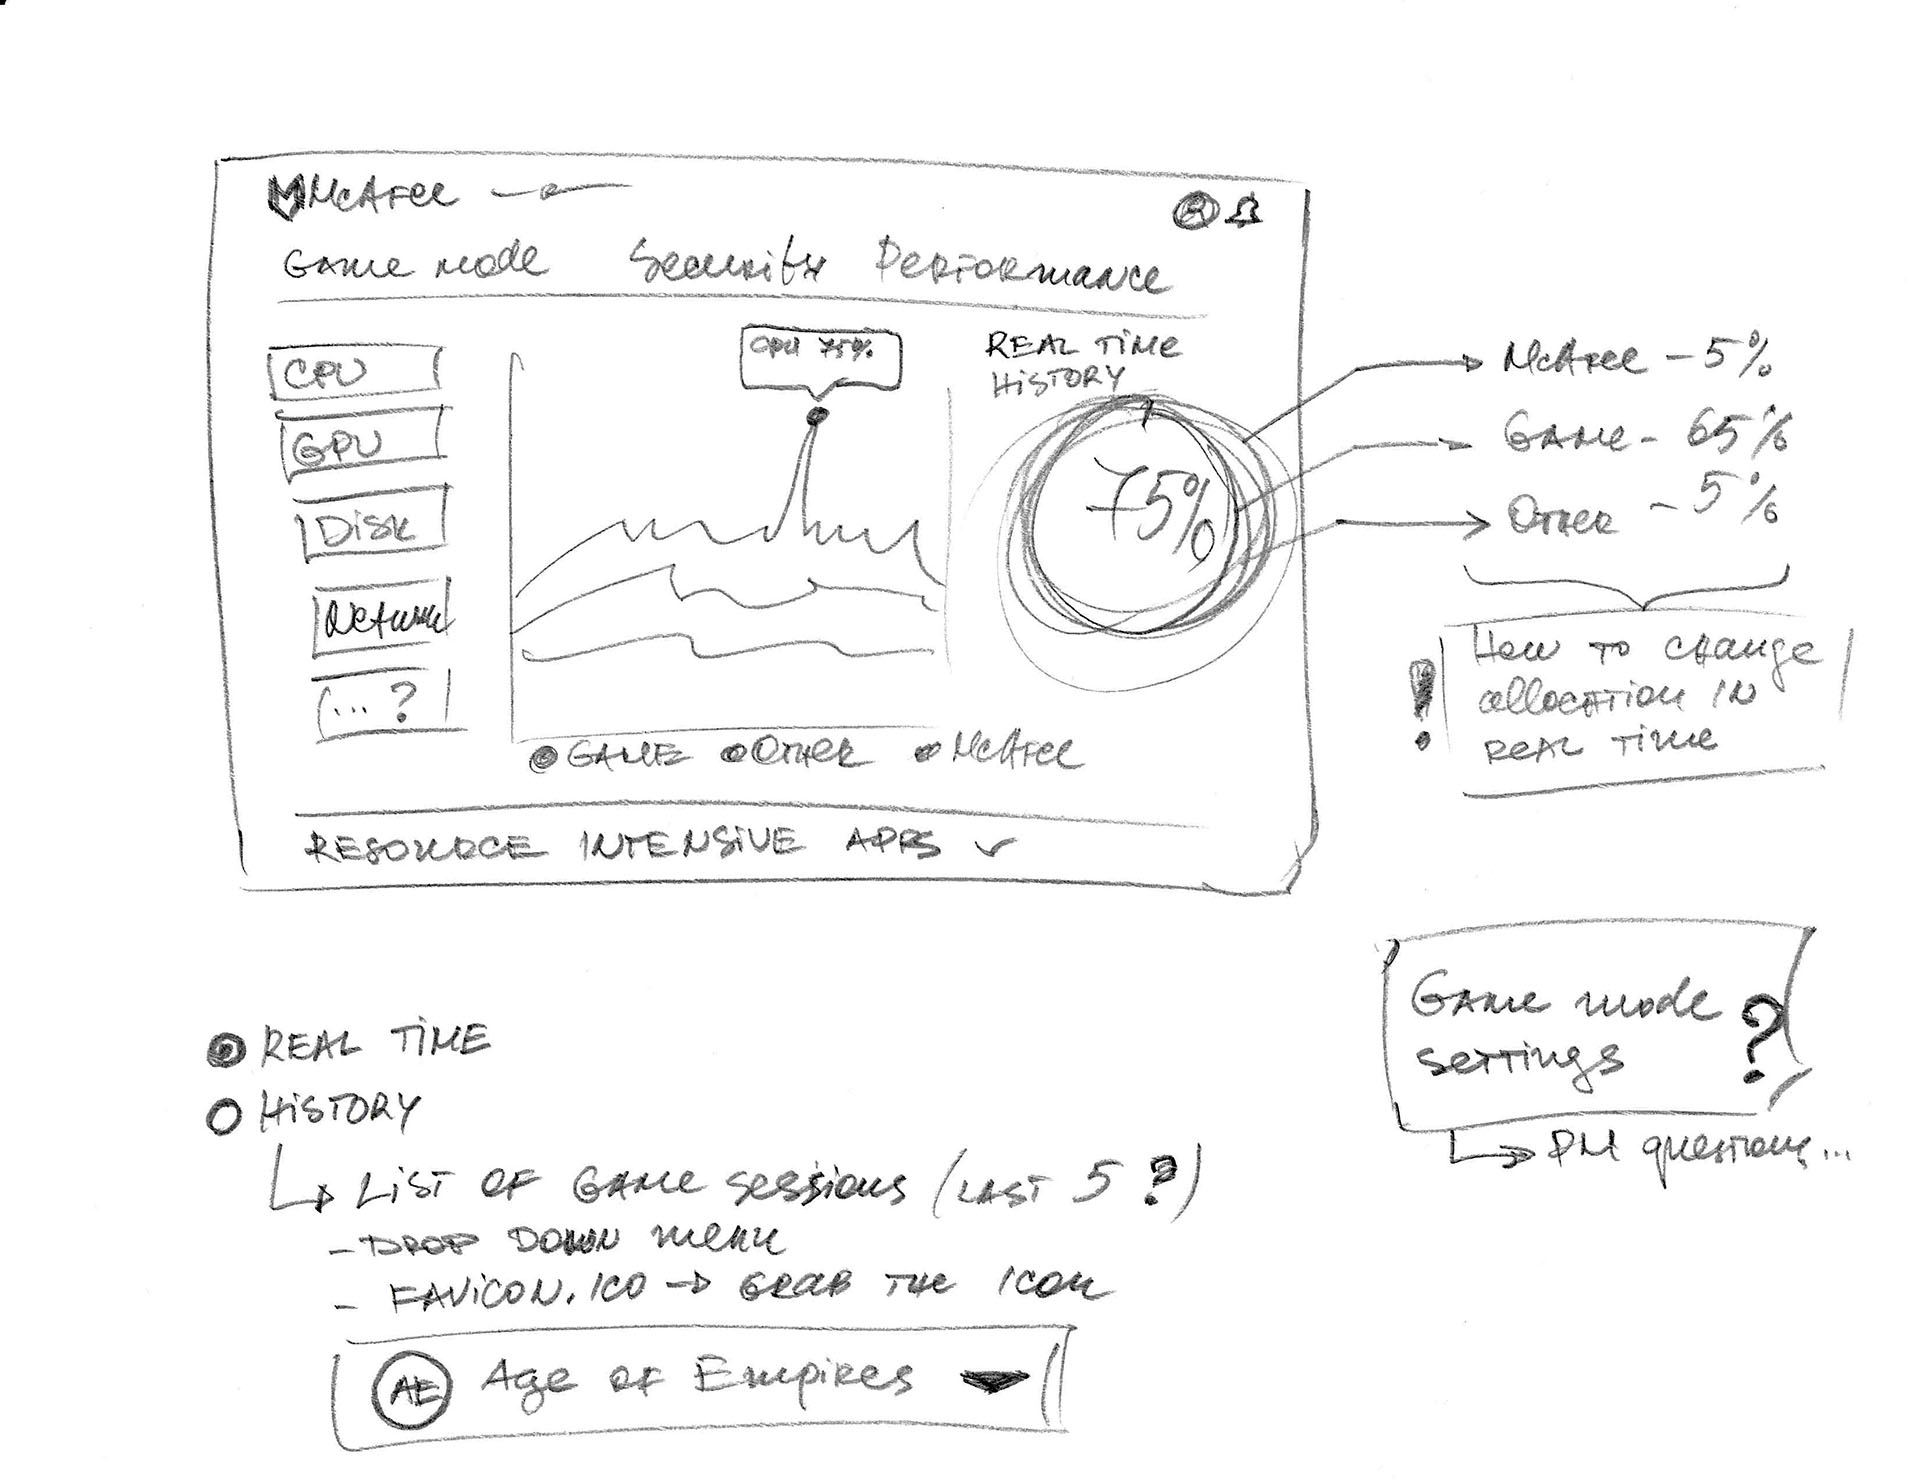 McAfee
Game mode Security Performance
CPU
GPU
Disk
Network
... ?
CPU 75%
REAL TIME
HISTORY
75%
GAME OTHER McAfee
RESOURCE INTENSIVE APPS
McAfee - 5%
GAME - 65%
OTHER - 5%
! How to change
allocation in
real time
Game mode
settings ?
PM questions...
REAL TIME
HISTORY
List of Game sessions (LAST 5 ?)
- DROP DOWN menu
- FAVICON.ICO → GRAB THE ICON
AE Age of Empires